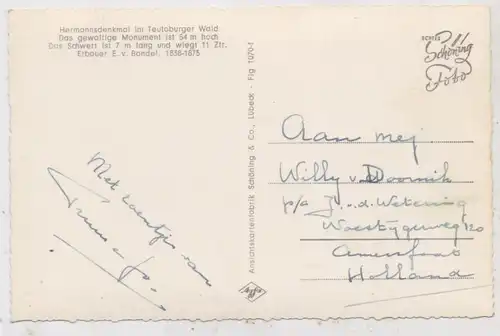 Hermannsdenkmal im Teutoburger Wald
Das gewaltige Monument ist 54 m hoch
Das Schwert ist 7 m lang und wiegt 11 Ztr.
Erbauer E. v. Bandel, 1838-1875
Schöning
Foto
Ansichtskartenfabrik Schöning & Co., Lübeck - Flg 11/0-f
Agfa
Met groetjes van
Aan mej.
Willy v. Doornik
p/a J. v. d. Wetering
Woestijgerweg 120
Amersfoort
Holland